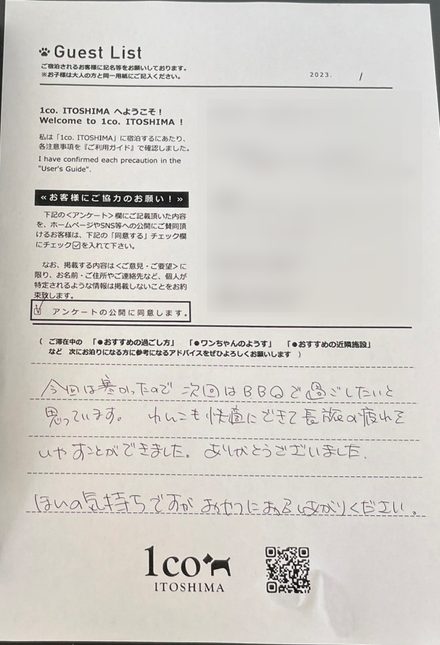 Guest List
ご宿泊されるお客様に記名等をお願いしております。
※お子様は大人の方と同一用紙にご記入ください。
2023. /
1co. ITOSHIMA へようこそ！
Welcome to 1co. ITOSHIMA !
私は「1co. ITOSHIMA」に宿泊するにあたり、
各注意事項を『ご利用ガイド』で確認しました。
I have confirmed each precaution in the
"User's Guide".
≪お客様にご協力のお願い！≫
下記の<アンケート>欄にご記載頂いた内容
を、ホームページやSNS等への公開にご賛同頂
けるお客様は、下記の「同意する」チェック欄
にチェック☑を入れて下さい。
なお、掲載する内容は<ご意見・ご要望>に
限り、お名前・ご住所やご連絡など、個人が
特定されるような情報は掲載しないことをお約
束致します。
☑ アンケートの公開に同意します。
( ご滞在中の 「●おすすめの過ごし方」 「●ワンちゃんのようす」 「●おすすめの近隣施設」
など 次にお泊りになる方に参考になるアドバイスをぜひよろしくお願いします )
今回は寒かったので 次回はBBQで過ごしたいと
思っています。 わんこも快適にできて長旅の疲れを
いやすことができました。ありがとうございました。
ほんの気持ちですが おやつにおめしあがりください。
1co
ITOSHIMA